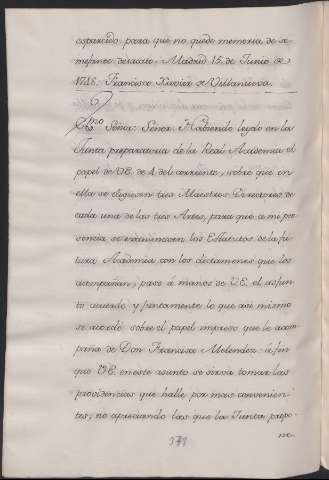 esparcido, para que no quede memoria de se-
mejante desacato. Madrid 15 de Junio de
1746. Francisco Xavier de Villanueva.
Exmo Señor: Señor: Habiendo leydo en la
Junta preparatoria de la Real Academia el
papel de V.E. de 4 del corriente, sobre que en
ella se eligiesen tres Maestros Directores de
cada una de las tres Artes, para que a mi pre-
sencia se examinasen los Estatutos de la fu-
tura Academia con los dictamenes que los
acompañan; paso á manos de V.E. el adjun-
to acuerdo y juntamente lo que asi mismo
se acordó sobre el papel impreso que le acom-
paña de Don Francisco Melendez: á fin
que V.E. en este asunto se sirva tomar las
providencias que halle por mas convenien-
tes; no apreciando las que la Junta propo-
ne.